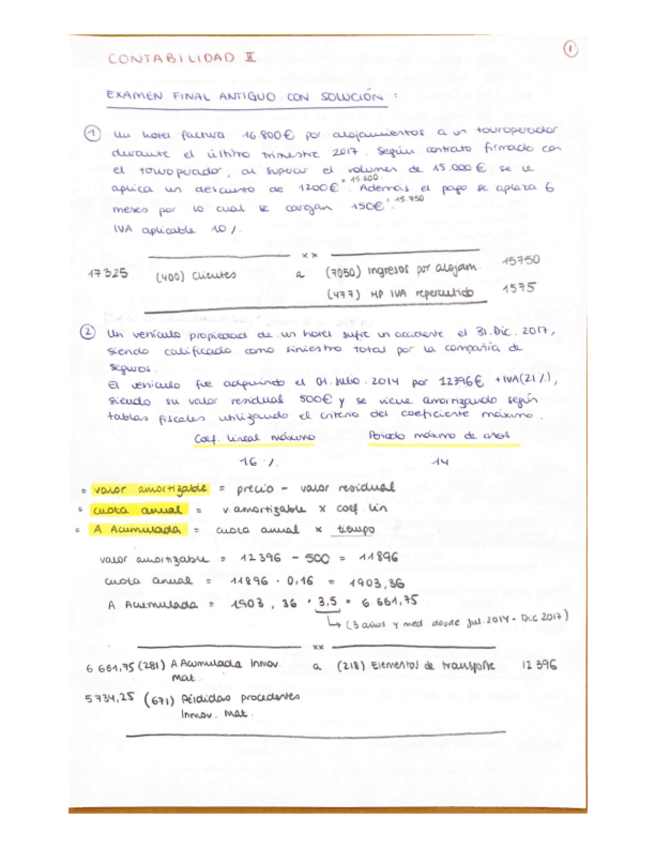 1
CONTABILIDAD II
EXAMEN FINAL ANTIGUO CON SOLUCIÓN :
1 Un hotel factura 16800€ por alojamientos a un touroperador
durante el último trimestre 2017. Según contrato firmado con
el touroperador, al superar el volumen de 15.000 € se le
aplica un descuento de 1200€ = 15.600. Además el pago se aplaza 6
meses por lo cual se cargan 150€ = 15.750.
IVA aplicable 10%.
xx
17325 (400) Clientes a (7050) Ingresos por alojam. 15750
(477) HP IVA repercutido 1575
2 Un vehículo propiedad de un hotel sufre un accidente el 31.Dic.2017,
siendo calificado como siniestro total por la compañía de
seguros.
El vehículo fue adquirido el 01.Julio.2014 por 12396€ + IVA(21%),
siendo su valor residual 500€ y se viene amortizando según
tablas fiscales utilizando el criterio del coeficiente máximo.
Coef. lineal máximo Periodo máximo de años
16 %. 14
valor amortizable = precio - valor residual
cuota anual = v.amortizable x coef. lin
A Acumulada = cuota anual x tiempo
valor amortizable = 12396 - 500 = 11896
cuota anual = 11896 · 0,16 = 1903,36
A Acumulada = 1903,36 · 3.5 = 6 661,75
(3 años y med desde Jul.2014 - Dic 2017)
xx
6 661,75 (281) A Acumulada Inmov. a (218) Elementos de transporte 12 396
Mat.
5734,25 (671) Pérdidas procedentes
Inmov. mat.